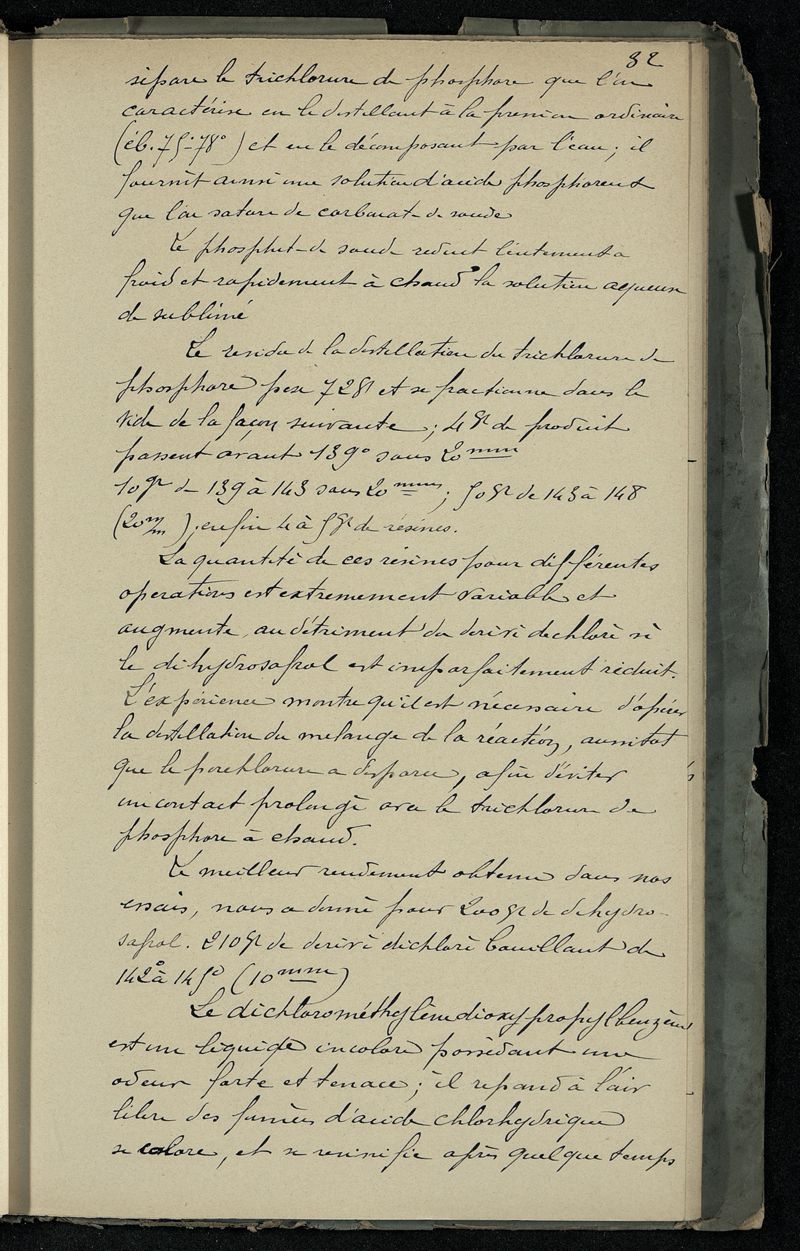 32
sépare le trichlorure de phosphore que l'on
caractérise en le distillant à la pression ordinaire
(éb. 75°-78°) et en le décomposant par l'eau; il
fournit ainsi une solution d'acide phosphoreux
que l'on sature de carbonate de soude
Le phosphite de soude réduit lentement a
froid et rapidement à chaud la solution aqueuse
de sublimé
Le residu de la distillation du trichlorure de
phosphore pèse 72gr et se fractionne dans le
vide de la façon suivante; 4gr de produit
passent avant 139° sous 20mm
10gr de 139 à 143 sous 20mm; 50gr de 143 à 148
(20m/m); enfin 4 à 5gr de résines.
La quantité de ces résines pour différentes
operations est extremement variable et
augmente, au détriment du derivé dichloré si
le dihydrosafrol est imparfaitement réduit.
L'expérience montre qu'il est nécessaire d'opérer
la distillation du melange de la réaction, aussitot
que le perchlorure a disparu, afin d'éviter
un contact prolongé avec le trichlorure de
phosphore à chaud.
Le meilleur rendement obtenu dans nos
essais, nous a donné pour 200gr de dihydro-
safrol. 210gr de derivé dichloré bouillant de
142° à 145° (10mm)
Le dichlorométhylène dioxy propylbenzène
est un liquide incolore possédant une
odeur forte et tenace; il repand à l'air
libre des fumées d'acide chlorhydrique
se colore, et se resinifie après quelque temps